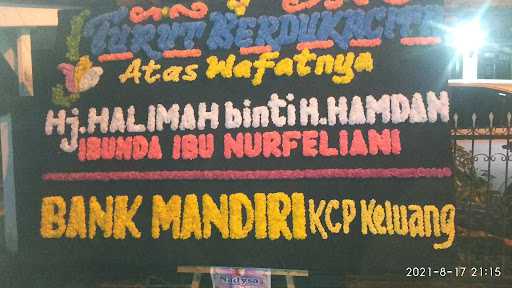 Turut Berdukacita
Atas Wafatnya
Hj. HALIMAH binti H. HAMDAN
IBUNDA IBU NURFELIANI
BANK MANDIRI KCP Keluang
Nadysa
2021-8-17 21:15